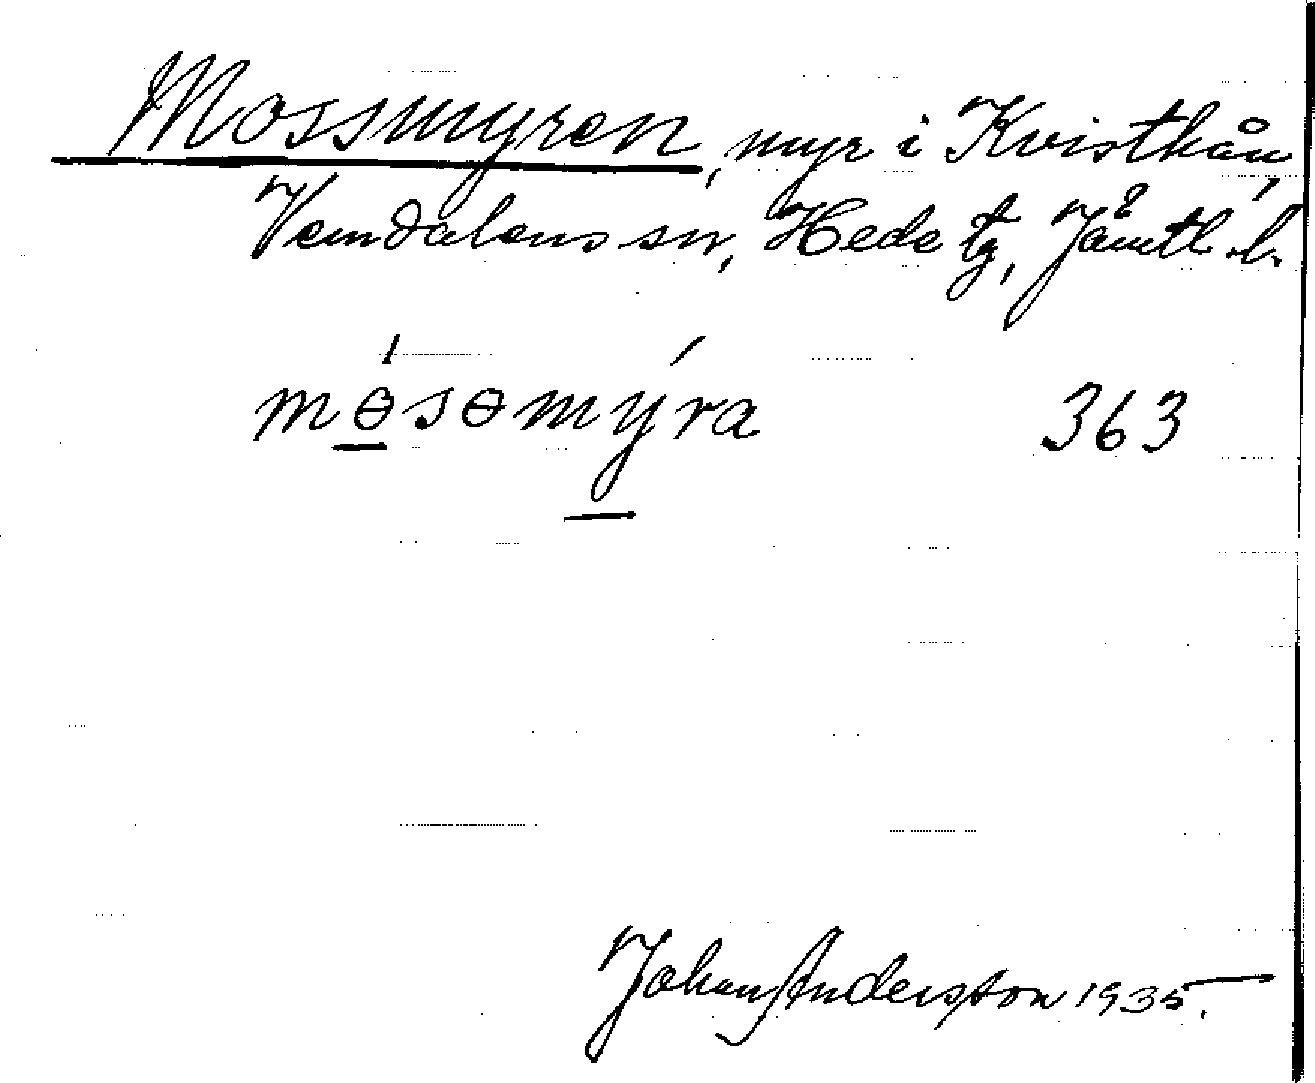 Mossmyren, myr i Kvisthån,
Vemdalens sn, Hede tg, Jämtl. l.
mɵsɵmýra 363
Johan Andersson 1935.